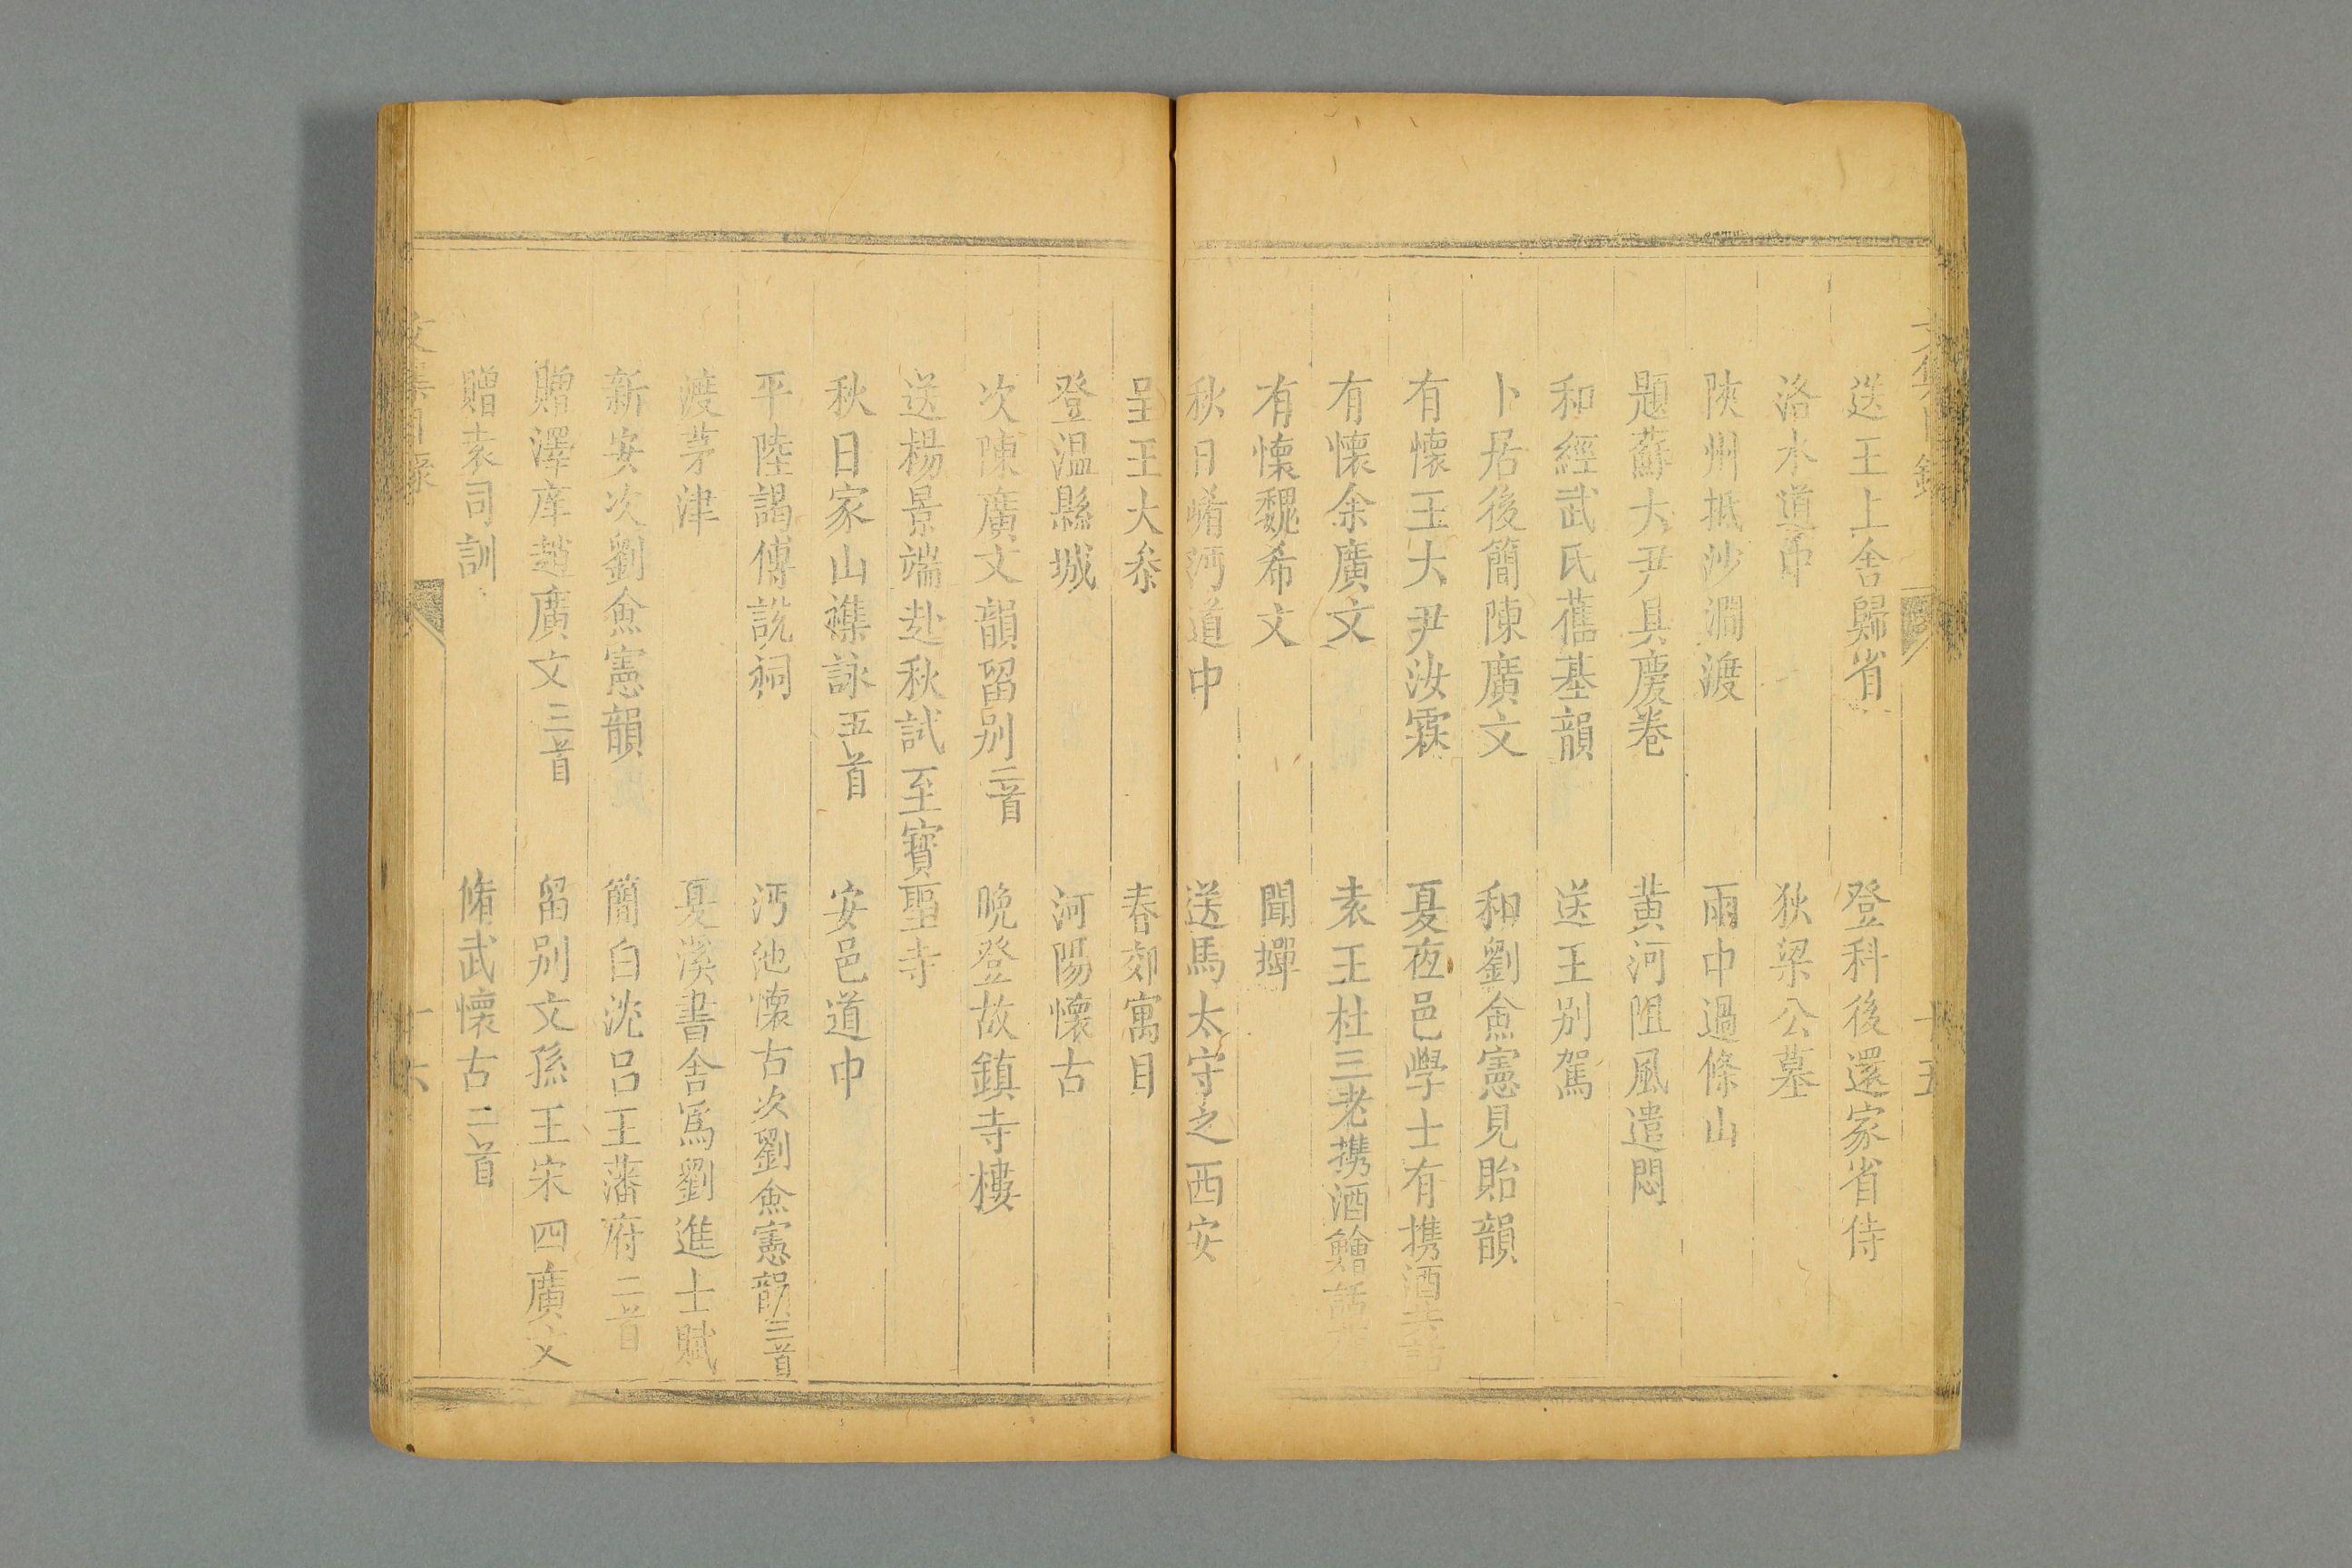 文集目錄 十五
送王上舍歸省 登科後還家省侍
洛水道中 狄梁公墓
陝州抵沙澗渡 雨中過條山
題蘇大尹具慶卷 黃河阻風遣悶
和經武氏舊基韻 送王別駕
卜居後簡陳廣文 和劉僉憲見貽韻
有懷王大尹汝霖 夏夜邑學士有携酒共話
有懷余廣文 袁王杜三老携酒鱠話
有懷魏希文 聞蟬
秋日崤河道中 送馬太守之西安
呈王大叅 春郊寓目
登温縣城 河陽懷古
次陳廣文韻留别二首 晚登故鎮寺樓
送楊景端赴秋試至寳聖寺
秋日家山襍詠五首 安邑道中
平陸謁傅說祠 沔池懷古次劉僉憲韻三首
渡茅津 夏溪書舍爲劉進士賦
新安次劉僉憲韻 簡白沈呂王藩府二首
贈澤庠趙廣文三首 留别文孫王宋四廣文
贈袁司訓 脩武懷古二首
文集目錄 十六